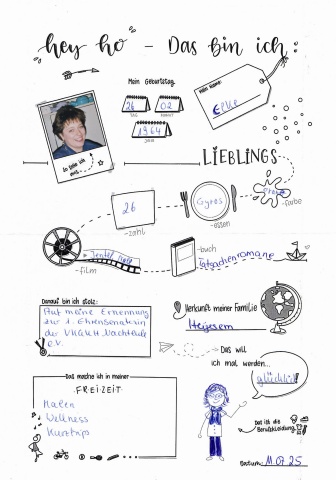 hey ho - Das bin ich:
Mein Geburtstag
26 02
TAG MONAT
1964
JAHR
MEIN NAME:
Elke
So sehe ich
aus
LIEBLINGS
26
-zahl
Gyros
-essen
-farbe
-film
-buch
Tatsachenromane
Darauf bin ich stolz:
Auf meine Ernennung
zur 1. Ehrensenatorin
e.V.
Herkunft meiner Familie
Das will
ich mal werden...
glücklich
Das mache ich in meiner
FREIZEIT
Malen
Wellness
Kurztrips
Das ist die
Berufskleidung
Datum: 11.07.25